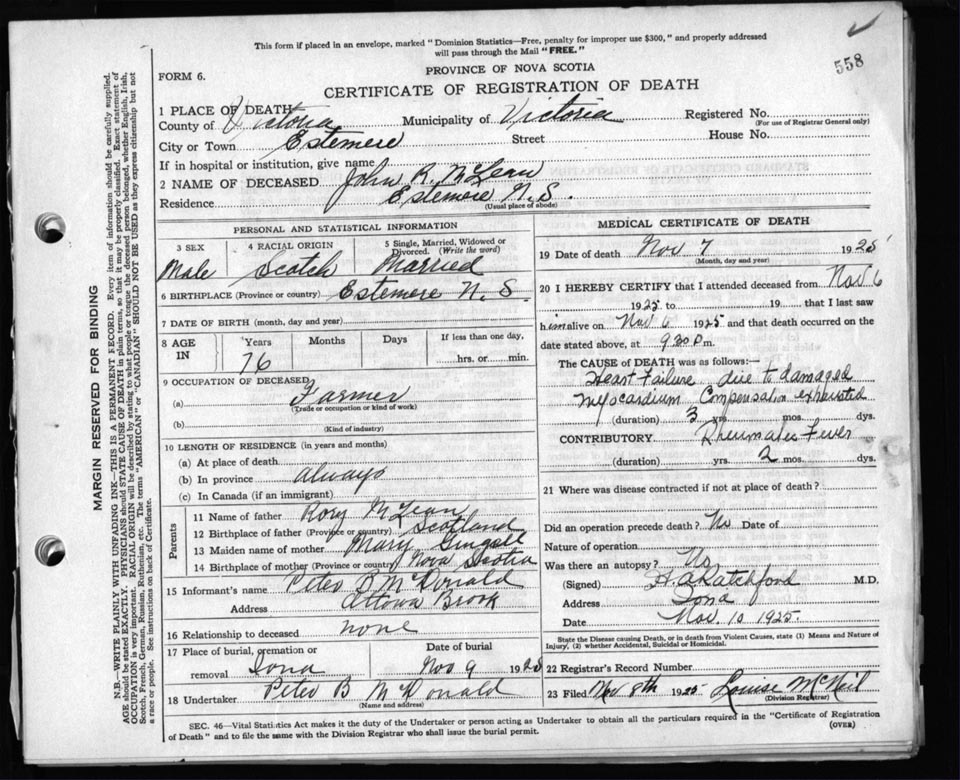 This form if placed in an envelope, marked "Dominion Statistics—Free, penalty for improper use $300," and properly addressed
will pass through the Mail "FREE."
558
FORM 6.
PROVINCE OF NOVA SCOTIA
CERTIFICATE OF REGISTRATION OF DEATH
1 PLACE OF DEATH
County of Victoria Municipality of Victoria Registered No.
(For use of Registrar General only)
City or Town Estemere Street House No.
If in hospital or institution, give name
2 NAME OF DECEASED John R. McLean
Residence Estemere N.S.
(Usual place of abode)
PERSONAL AND STATISTICAL INFORMATION
3 SEX 4 RACIAL ORIGIN 5 Single, Married, Widowed or Divorced. (Write the word)
Male Scotch Married
6 BIRTHPLACE (Province or country) Estemere N.S.
7 DATE OF BIRTH (month, day and year)
8 AGE IN Years Months Days If less than one day,
76 hrs. or min.
9 OCCUPATION OF DECEASED
(a) Farmer
(Trade or occupation or kind of work)
(b)
(Kind of industry)
10 LENGTH OF RESIDENCE (in years and months)
(a) At place of death
(b) In province always
(c) In Canada (if an immigrant)
Parents
11 Name of father Rory McLean
12 Birthplace of father (Province or country) Scotland
13 Maiden name of mother Mary
14 Birthplace of mother (Province or country) Nova Scotia
15 Informant's name Peter B McDonald
Address Ottawa Brook
16 Relationship to deceased none
17 Place of burial, cremation or removal Iona Date of burial Nov 9 1925
18 Undertaker Peter B McDonald
(Name and address)
MEDICAL CERTIFICATE OF DEATH
19 Date of death Nov 7 1925
(Month, day and year)
20 I HEREBY CERTIFY that I attended deceased from Nov 6
1925 to 19 that I last saw
him alive on Nov 6 1925 and that death occurred on
date stated above, at 9 30 P.m.
The CAUSE OF DEATH was as follows:—
Heart Failure due to damaged
Myocardium Compensation exhausted
(duration) 3 yrs. mos. dys.
CONTRIBUTORY Rheumatic Fever
(duration) yrs. 2 mos. dys.
21 Where was disease contracted if not at place of death?
Did an operation precede death? No Date of
Nature of operation
Was there an autopsy? No
(Signed) H. A. Ratchford M.D.
Address Iona
Date Nov. 10 1925.
State the Disease causing Death, or in death from Violent Causes, state (1) Means and Nature of
Injury, (2) whether Accidental, Suicidal or Homicidal.
22 Registrar's Record Number
23 Filed Nov 8th 1925 Louise McNeil
(Division Registrar)
SEC. 46—Vital Statistics Act makes it the duty of the Undertaker or person acting as Undertaker to obtain all the particulars required in the "Certificate of Registration
of Death" and to file the same with the Division Registrar who shall issue the burial permit.
(OVER)
MARGIN RESERVED FOR BINDING
N.B.—WRITE PLAINLY WITH UNFADING INK—THIS IS A PERMANENT RECORD. Every item of information should be carefully supplied.
AGE should be stated EXACTLY. PHYSICIANS should STATE CAUSE OF DEATH in plain terms, so that it may be properly classified. Exact statement of
OCCUPATION is very important. RACIAL ORIGIN will be described by stating to what people or tongue the deceased person belonged, whether English, Irish,
Scotch, French, German, Russian, Ruthenian, etc. The terms "AMERICAN" or "CANADIAN" SHOULD NOT BE USED as they express citizenship but not
a race or people. See instructions on back of Certificate.